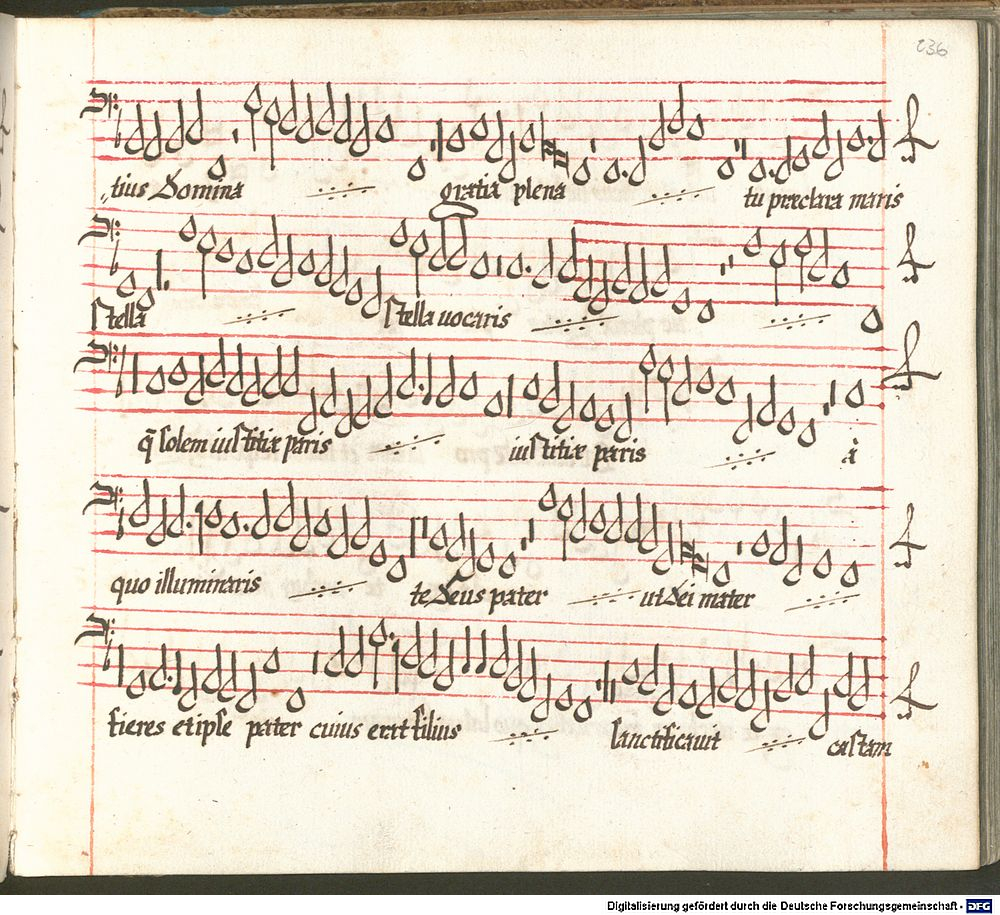 236
tius Domina gratia plena tu præclara maris
stella stella uocaris
q̃ solem iustitiæ paris iustitiæ paris à
quo illuminaris te Deus pater ut Dei mater
fieres et ipse pater cuius erat filius sanctificauit castam
Digitalisierung gefördert durch die Deutsche Forschungsgemeinschaft - DFG